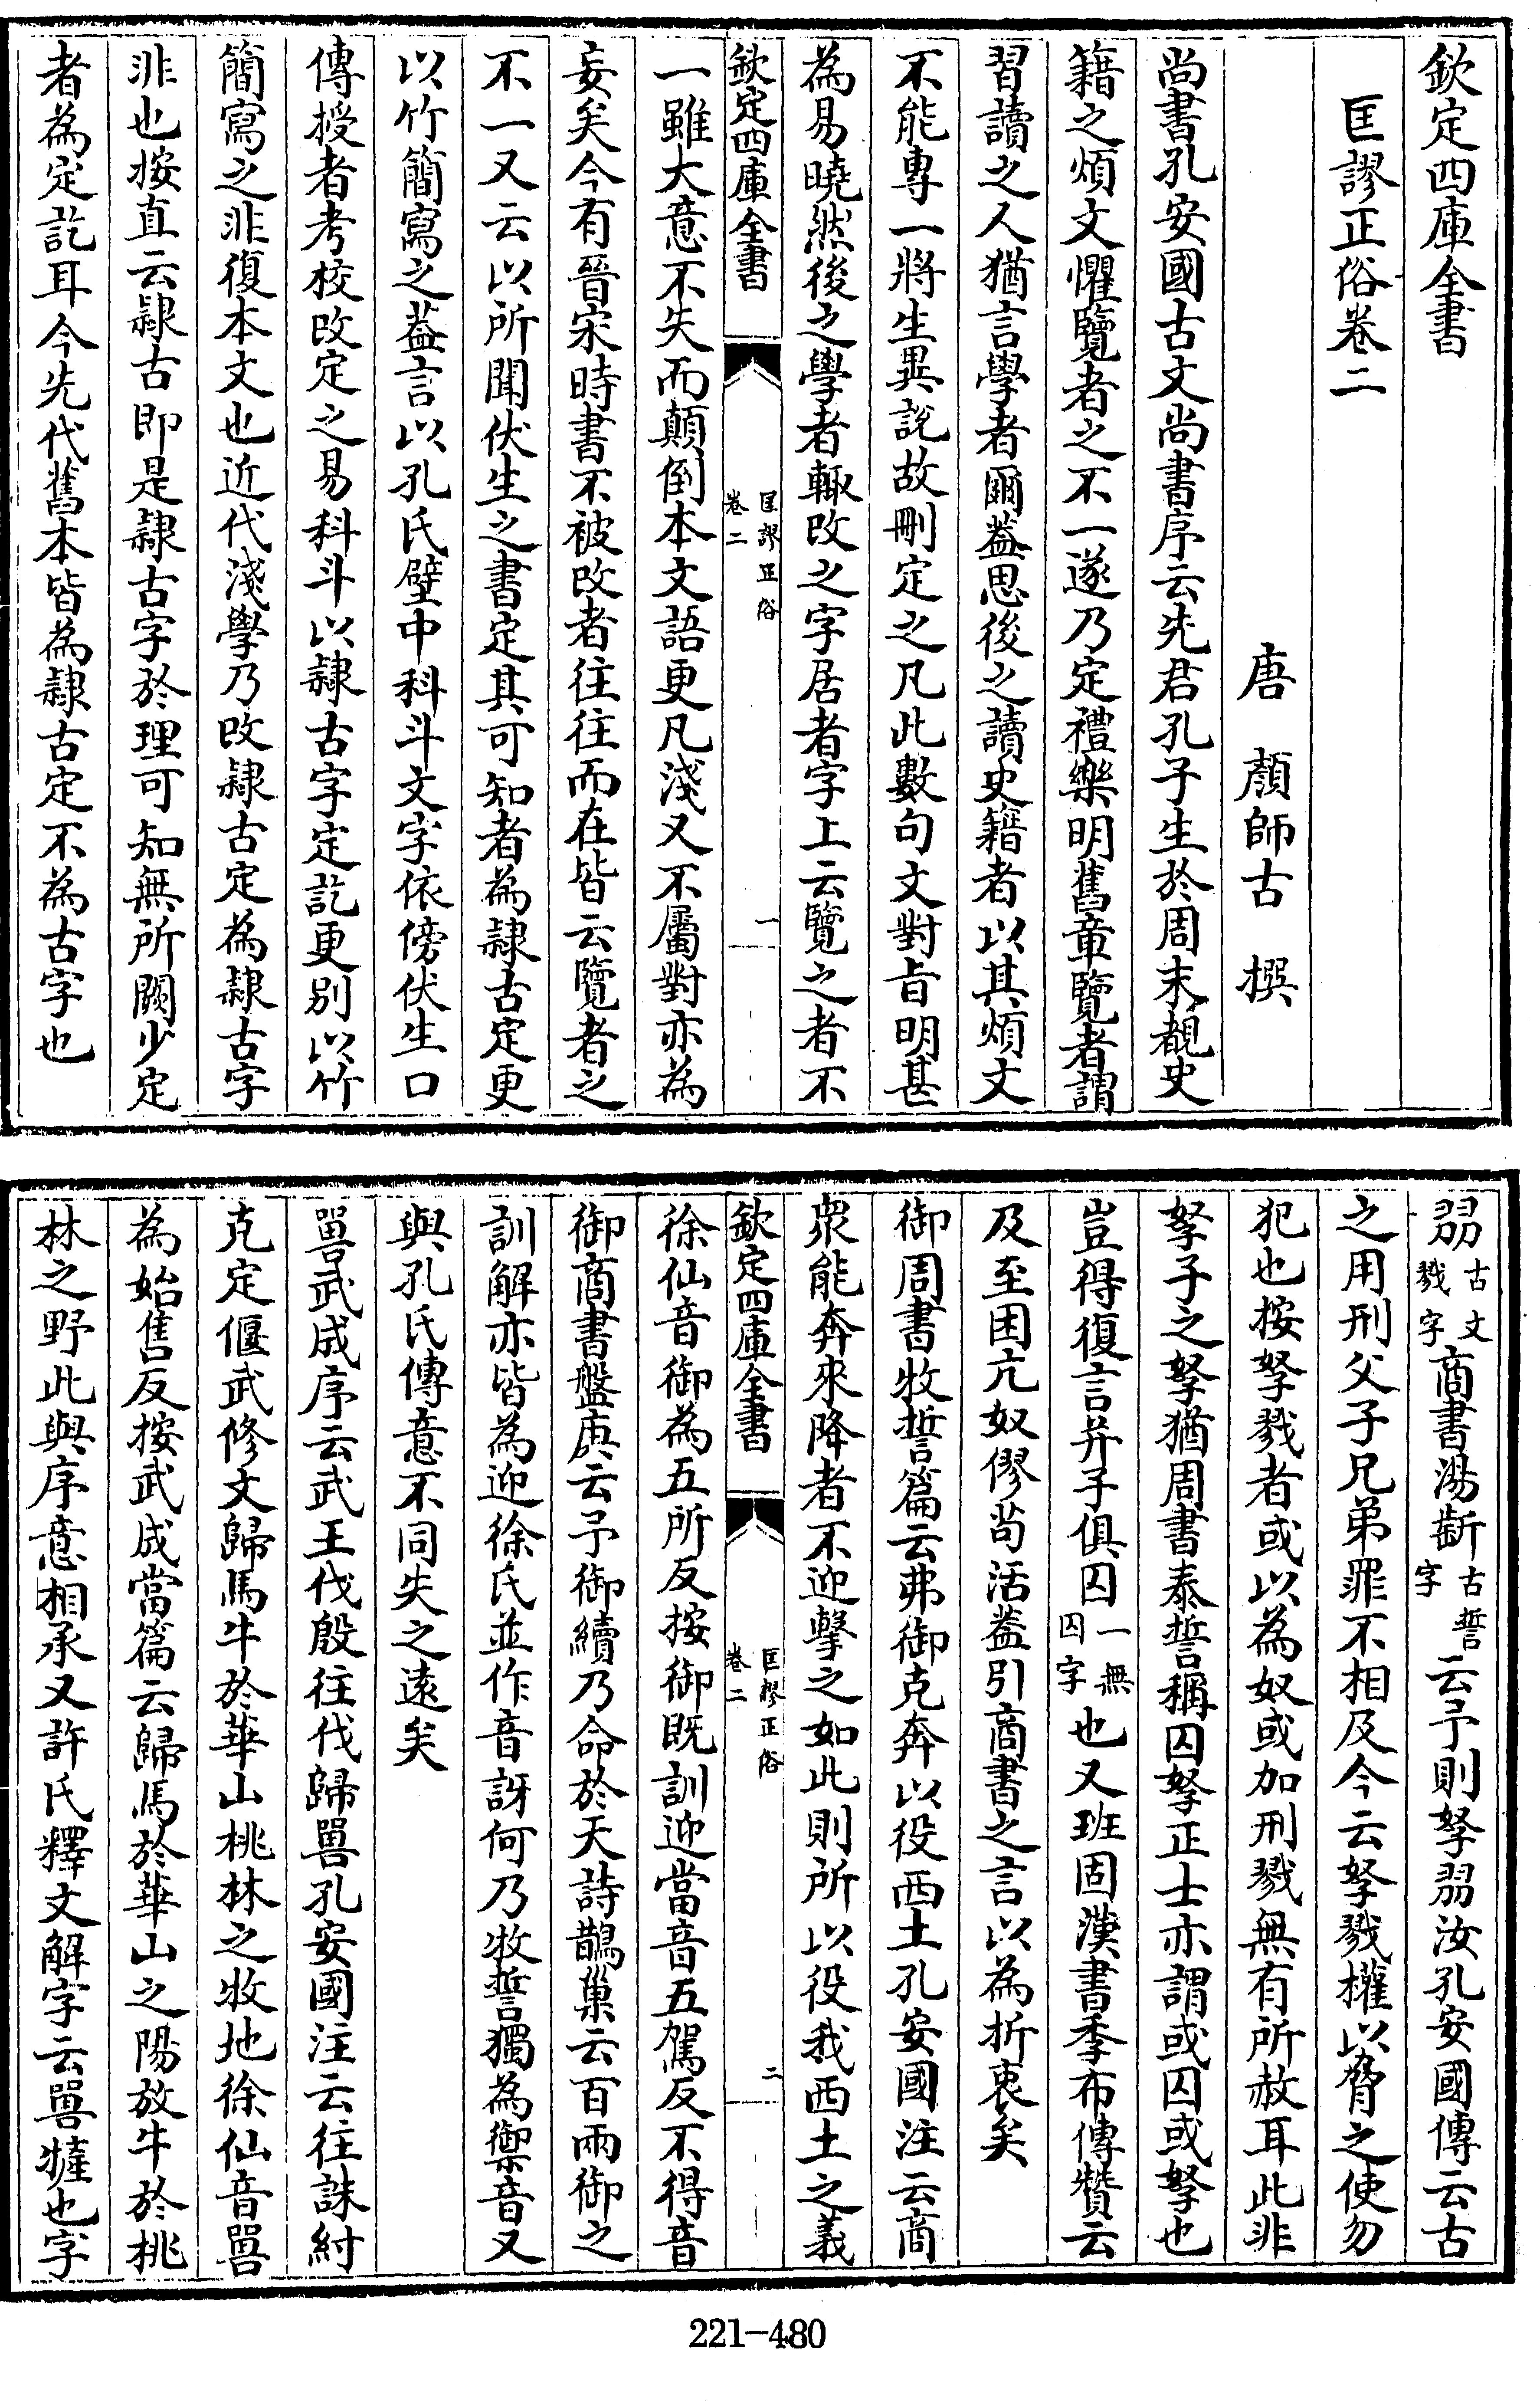 欽定四庫全書
匡謬正俗卷二
唐 顔師古 撰
尚書孔安國古文尚書序云先君孔子生於周末覩史
籍之煩文懼覽者之不一遂乃定禮樂明舊章覽者謂
習讀之人猶言學者爾葢思後之讀史籍者以其煩文
不能專一將生異説故刪定之凡此數句文對㫖明甚
為易曉然後之學者輙改之字居者字上云覽之者不
欽定四庫全書
匡謬正俗
卷二
一
一雖大意不失而顛倒本文語更凡淺又不屬對亦為
妄矣今有晉宋時書不被改者往往而在皆云覽者之
不一又云以所聞伏生之書定其可知者為隷古定更
以竹簡寫之葢言以孔氏壁中科斗文字依傍伏生口
傳授者考校改定之易科斗以隷古字定訖更别以竹
簡寫之非復本文也近代淺學乃改隷古定為隷古字
非也按直云隷古即是隷古字於理可知無所闕少定
者為定訖耳今先代舊本皆為隷古定不為古字也
㓝古文戮字商書湯斮古誓字云予則孥㓝汝孔安國傳云古
之用刑父子兄弟罪不相及今云孥戮權以脅之使勿
犯也按孥戮者或以為奴或加刑戮無有所赦耳此非
孥子之孥猶周書泰誓稱囚孥正士亦謂或囚或孥也
豈得復言并子俱囚一無囚字也又班固漢書季布傳贊云
及至困亢奴僇茍活葢引商書之言以為折衷矣
御周書牧誓篇云弗御克奔以役西土孔安國注云商
衆能奔來降者不迎擊之如此則所以役我西土之義
欽定四庫全書
匡謬正俗
卷二
二
徐仙音御為五所反按御既訓迎當音五駕反不得音
御商書盤庚云予御續乃命於天詩鵲巢云百兩御之
訓解亦皆為迎徐氏並作音訝何乃牧誓獨為禦音又
與孔氏傳意不同失之遠矣
嘼武成序云武王伐殷往伐歸嘼孔安國注云往誅紂
克定偃武修文歸馬牛於華山桃林之牧地徐仙音嘼
為始售反按武成當篇云歸馬於華山之陽放牛於桃
林之野此與序意相承又許氏釋文解字云嘼㹌也字
221-480